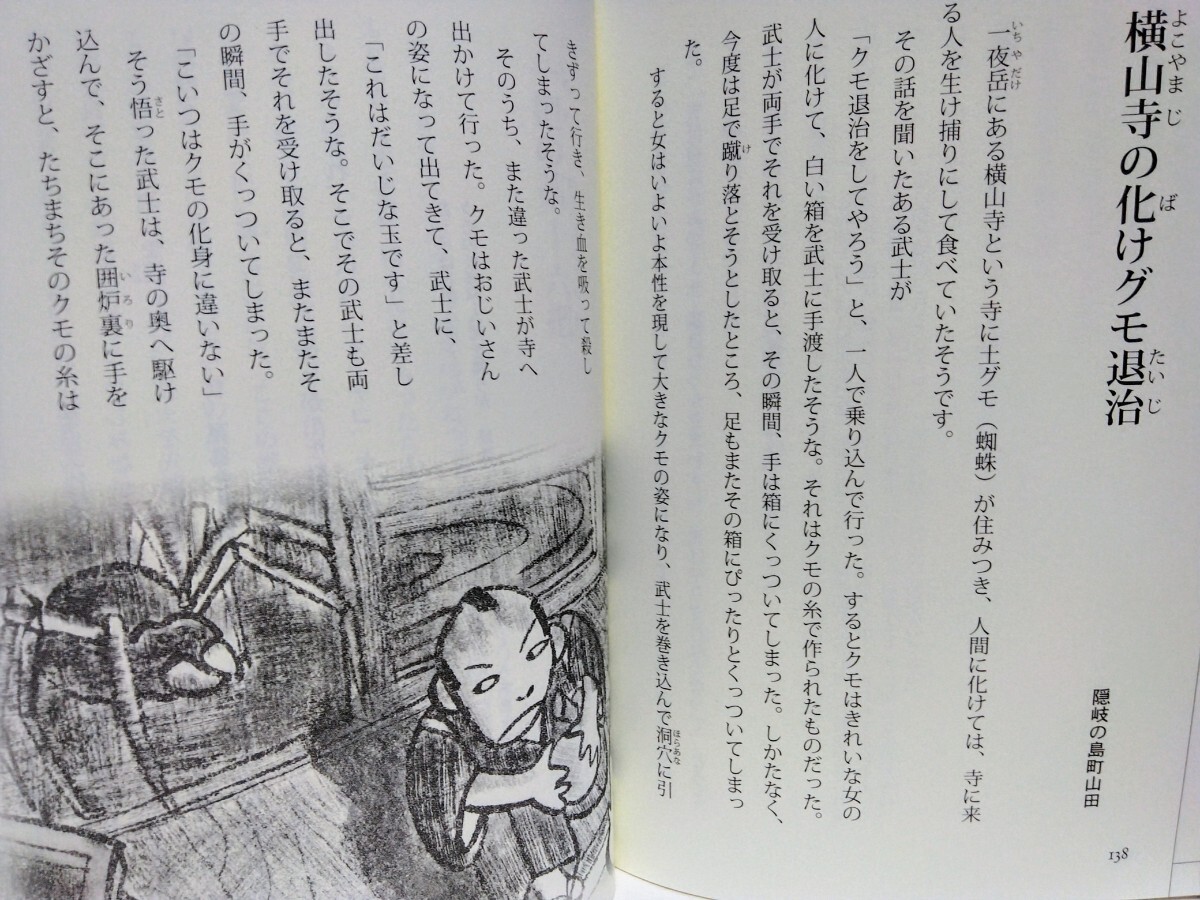 横山寺の化けグモ退治
よこやまじ
ば
たいじ
隠岐の島町山田
一夜岳にある横山寺という寺に土グモ（蜘蛛）が住みつき、人間に化けては、寺に来
いちやだけ
る人を生け捕りにして食べていたそうです。
その話を聞いたある武士が
「クモ退治をしてやろう」と、一人で乗り込んで行った。するとクモはきれいな女の
人に化けて、白い箱を武士に手渡したそうな。それはクモの糸で作られたものだった。
武士が両手でそれを受け取ると、その瞬間、手は箱にくっついてしまった。しかたなく、
今度は足で蹴り落とそうとしたところ、足もまたその箱にぴったりとくっついてしまっ
け
た。
すると女はいよいよ本性を現して大きなクモの姿になり、武士を巻き込んで洞穴に引
ほらあな
138
きずって行き、生き血を吸って殺し
てしまったそうな。
そのうち、また違った武士が寺へ
出かけて行った。クモはおじいさん
の姿になって出てきて、武士に、
「これはだいじな玉です」と差し
出したそうな。そこでその武士も両
手でそれを受け取ると、またまたそ
の瞬間、手がくっついてしまった。
「こいつはクモの化身に違いない」
そう悟った武士は、寺の奥へ駆け
さと
込んで、そこにあった囲炉裏に手を
いろり
かざすと、たちまちそのクモの糸は